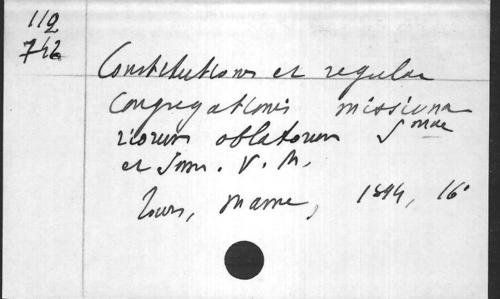 112
742
Constitutiones et regulae
Congregationis missiona
riorum oblatorum Smae
et Imm. V. M.
Tours, Mame, 1894, 16°